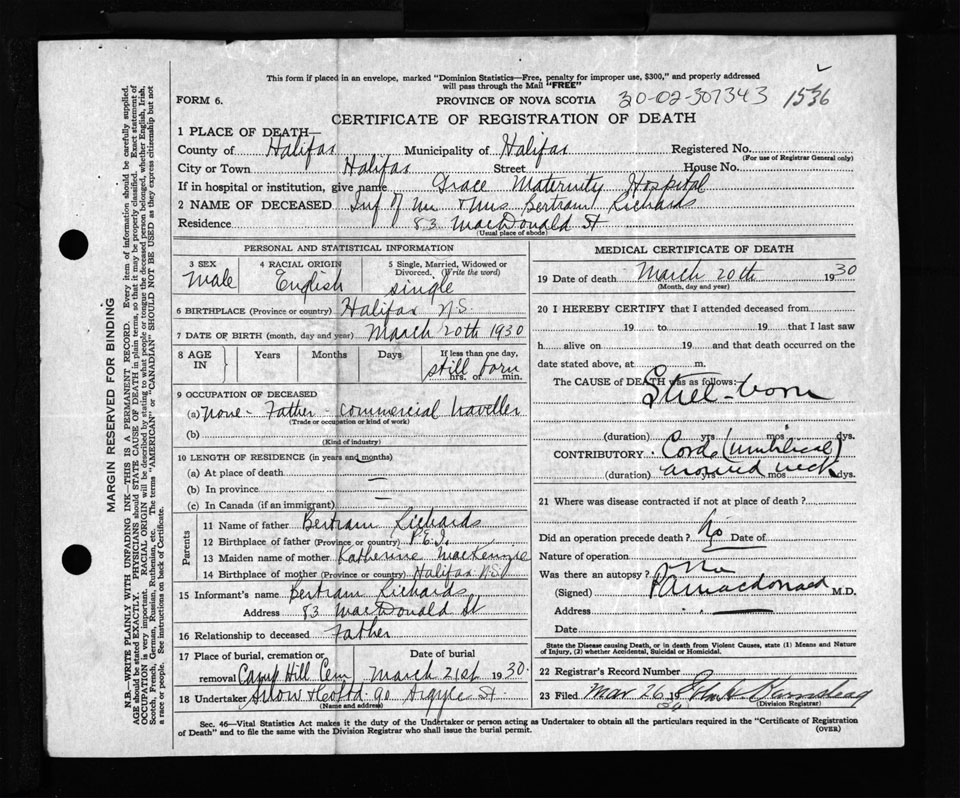 This form if placed in an envelope, marked "Dominion Statistics—Free, penalty for improper use, $300," and properly addressed
will pass through the Mail "FREE"
FORM 6.
PROVINCE OF NOVA SCOTIA
30-02-307343 1536
CERTIFICATE OF REGISTRATION OF DEATH
1 PLACE OF DEATH—
County of Halifax Municipality of Halifax Registered No.
(For use of Registrar General only)
City or Town Halifax Street House No.
If in hospital or institution, give name Grace Maternity Hospital
2 NAME OF DECEASED Inf of Mr & Mrs Bertram Richards
Residence 83 MacDonald St
(Usual place of abode)
PERSONAL AND STATISTICAL INFORMATION
3 SEX 4 RACIAL ORIGIN 5 Single, Married, Widowed or
Divorced. (Write the word)
Male English single
6 BIRTHPLACE (Province or country) Halifax N.S.
7 DATE OF BIRTH (month, day and year) March 20th 1930
8 AGE IN Years Months Days If less than one day,
still born
hrs. or min.
9 OCCUPATION OF DECEASED
(a) none - Father - commercial traveller
(Trade or occupation or kind of work)
(b)
(Kind of industry)
10 LENGTH OF RESIDENCE (in years and months)
(a) At place of death —
(b) In province —
(c) In Canada (if an immigrant) —
Parents
11 Name of father Bertram Richards
12 Birthplace of father (Province or country) P.E.I.
13 Maiden name of mother Katherine MacKenzie
14 Birthplace of mother (Province or country) Halifax N.S.
15 Informant's name Bertram Richards
Address 83 MacDonald St
16 Relationship to deceased Father
17 Place of burial, cremation or Date of burial
removal Camp Hill Cem March 21st 1930
18 Undertaker Snow & Co Ltd 90 Argyle St
(Name and address)
MEDICAL CERTIFICATE OF DEATH
19 Date of death March 20th 1930
(Month, day and year)
20 I HEREBY CERTIFY that I attended deceased from
19 to 19 that I last saw
h alive on 19 and that death occurred on the
date stated above, at m.
The CAUSE OF DEATH was as follows:
Still-born
(duration) yrs mos dys.
CONTRIBUTORY Cord (umbilical)
around neck
(duration) yrs mos dys.
21 Where was disease contracted if not at place of death?
Did an operation precede death? No Date of
Nature of operation
Was there an autopsy? No
(Signed) Macdonald M.D.
Address
Date
State the Disease causing Death, or in death from Violent Causes, state (1) Means and Nature
of Injury, (2) whether Accidental, Suicidal or Homicidal.
22 Registrar's Record Number
23 Filed Mar 26 30
(Division Registrar)
Sec. 46—Vital Statistics Act makes it the duty of the Undertaker or person acting as Undertaker to obtain all the particulars required in the "Certificate of Registration
of Death" and to file the same with the Division Registrar who shall issue the burial permit.
(OVER)
MARGIN RESERVED FOR BINDING
N.B.—WRITE PLAINLY WITH UNFADING INK—THIS IS A PERMANENT RECORD. Every item of information should be carefully supplied.
AGE should be stated EXACTLY. PHYSICIANS should STATE CAUSE OF DEATH in plain terms, so that it may be properly classified. Exact statement of
OCCUPATION is very important. RACIAL ORIGIN will be described by stating to what people or tongue the deceased person belonged, whether English, Irish,
Scotch, French, German, Russian, Ruthenian, etc. The terms "AMERICAN" or "CANADIAN" SHOULD NOT BE USED as they express citizenship but not
a race or people. See instructions on back of Certificate.